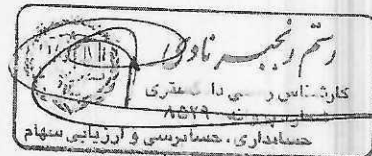 رستم رنجبر ناوی
کارشناس رسمی دادگستری
۸۵۲۹
حسابداری، حسابرسی و ارزیابی سهام